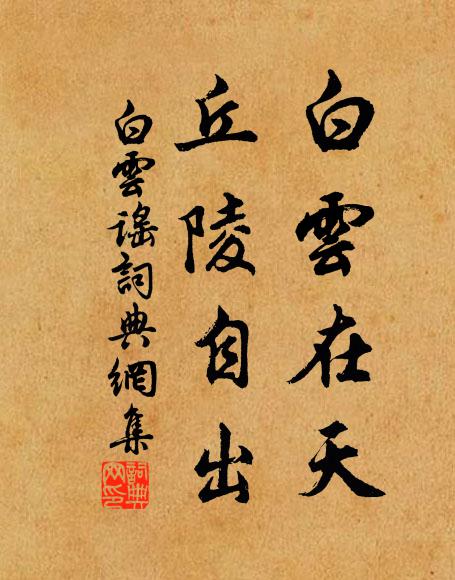 白雲在天
丘陵自出
白雲謠詞典網集
詞典網印